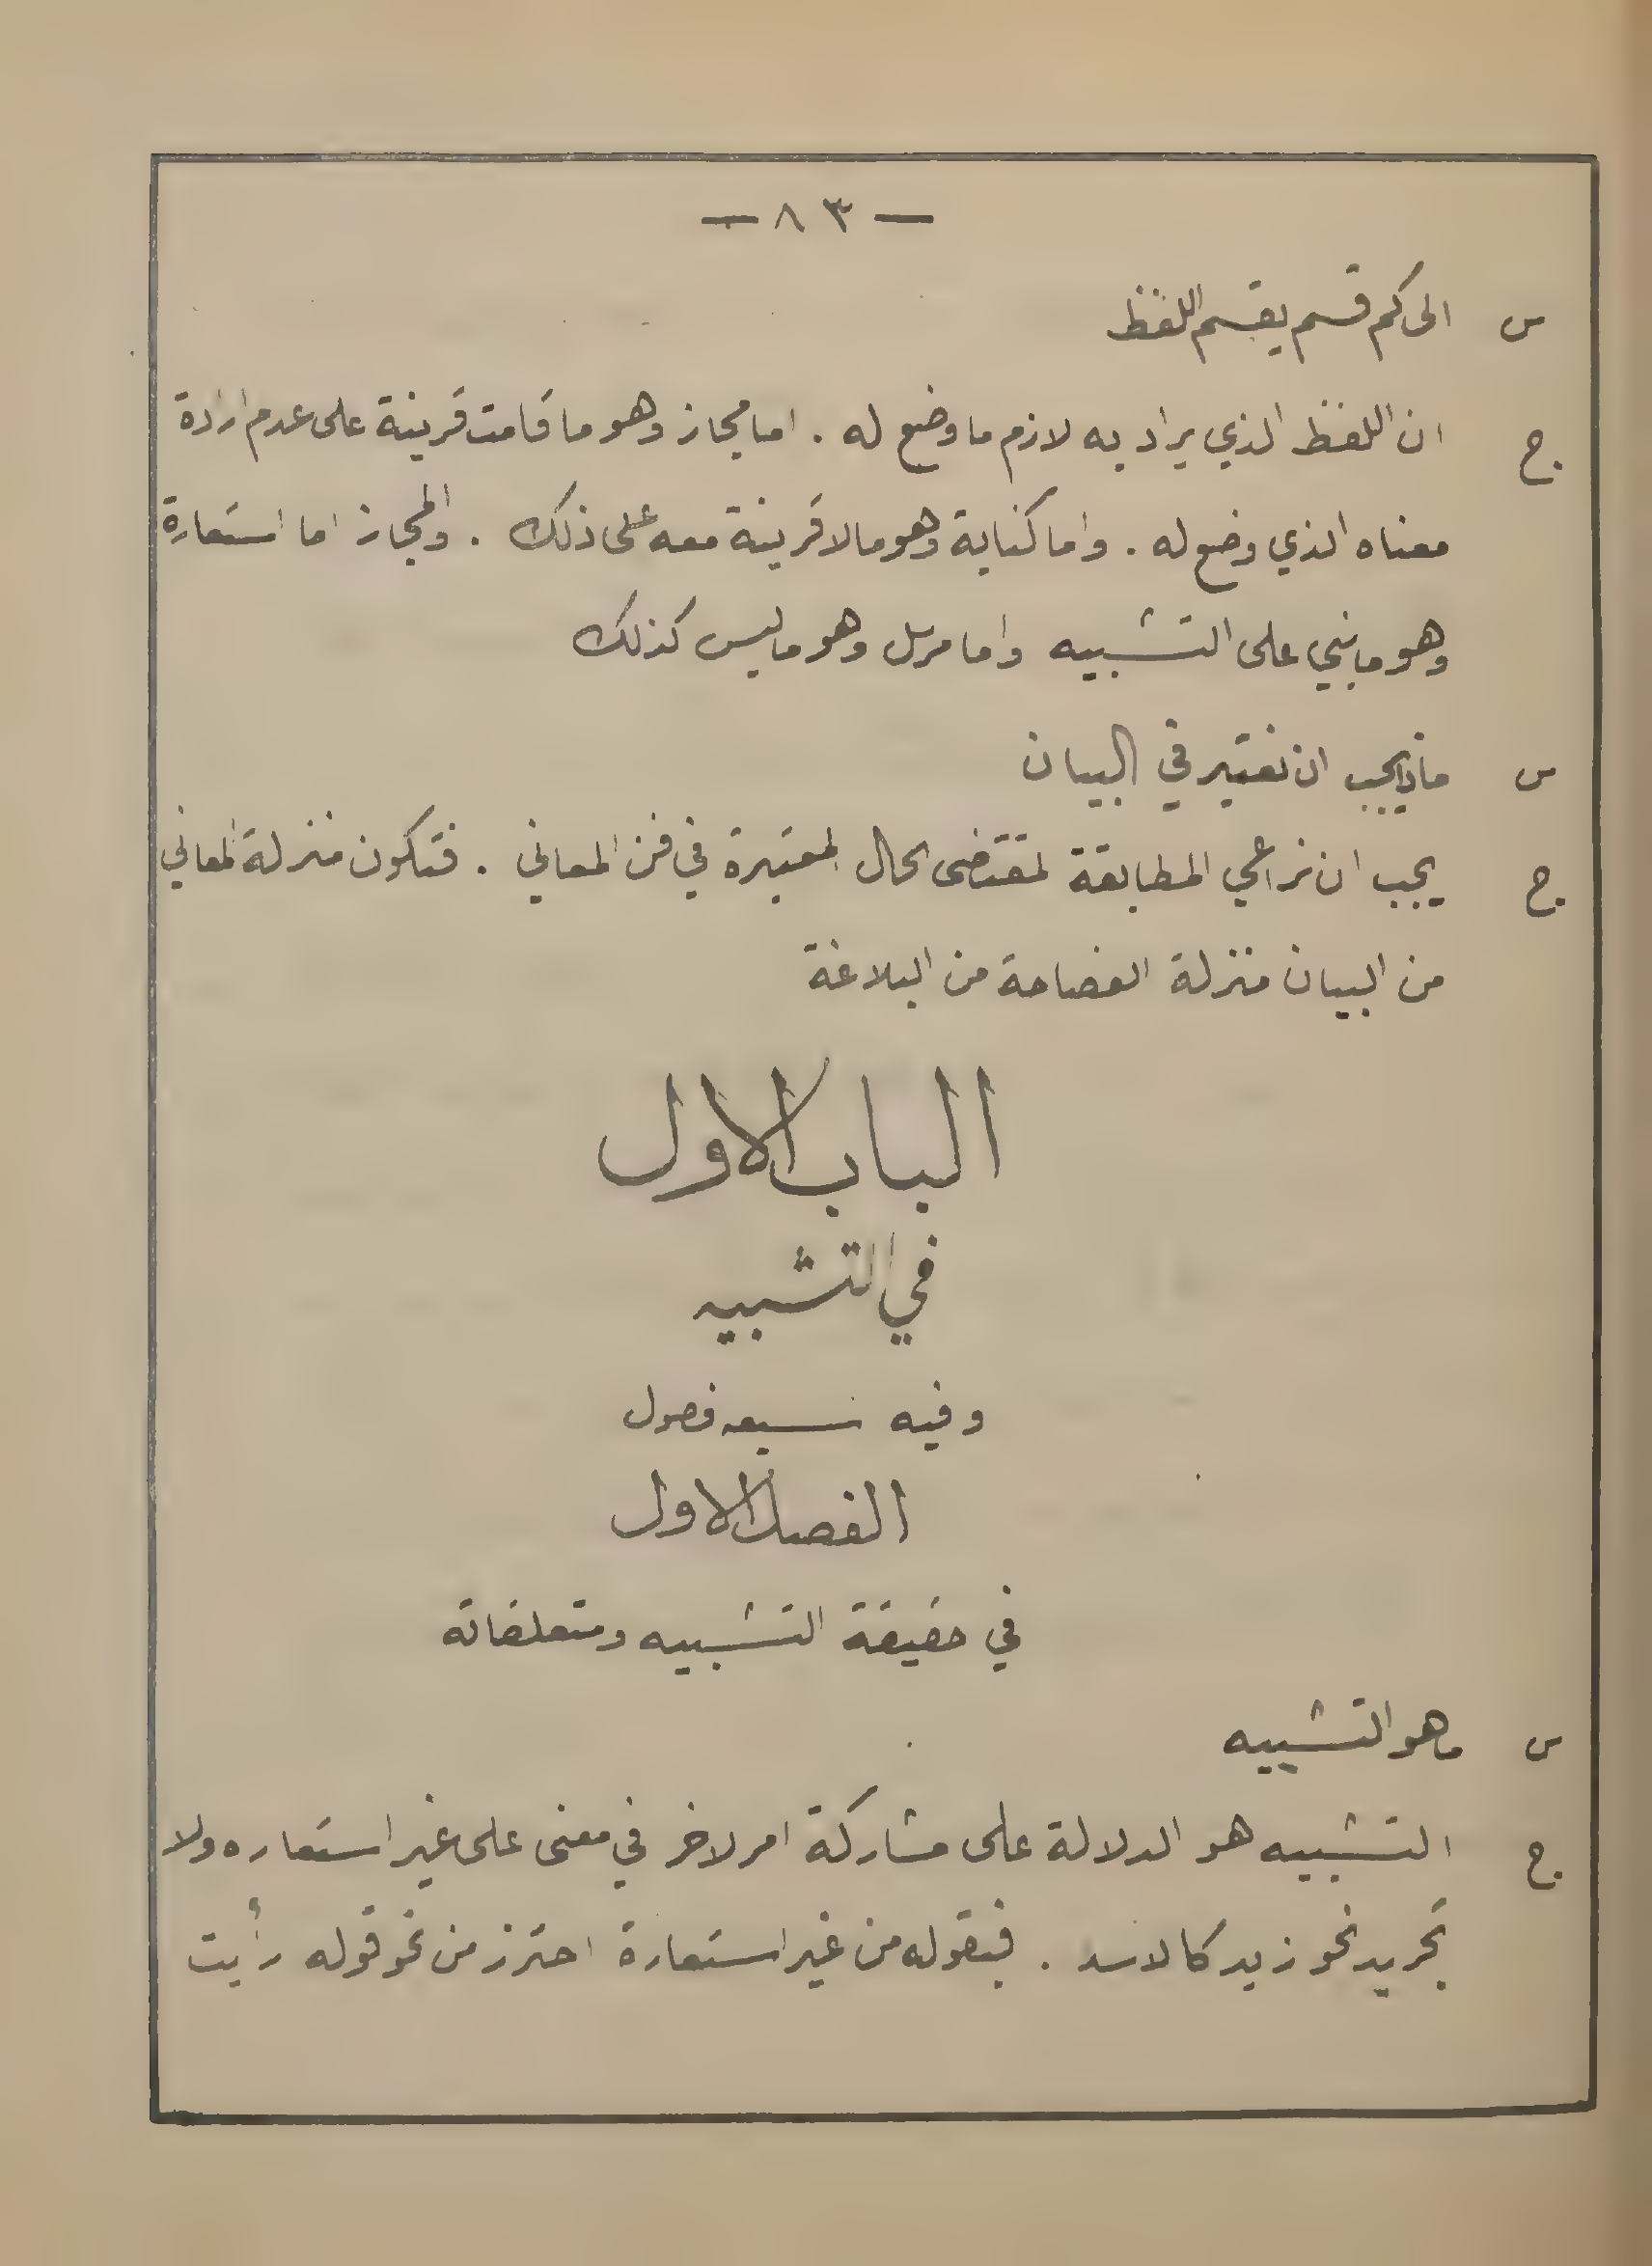 — ٨٣ —
س الى كم قسم يقسم اللفظ
ج ان اللفظ الذي يراد به لازم ما وضع له . اما مجاز وهو ما قامت قرينة على عدم ارادة
معناه الذي وضع له . واما كناية وهو ما لا قرينة معه على ذلك . والمجاز اما استعارة
وهو ما بني على التشبيه واما مرسل وهو ما ليس كذلك
س ماذا يجب ان نعتبر في البيان
ج يجب ان نراعي المطابقة لمقتضى الحال المعتبرة في فن المعاني . فتكون منزلة المعاني
من البيان منزلة الفصاحة من البلاغة
الباب الاول
في التشبيه
وفيه سبعه فصول
الفصل الاول
في حقيقة التشبيه ومتعلقاته
س ما هو التشبيه
ج التشبيه هو الدلالة على مشاركة امر لاخر في معنى على غير استعاره ولا
تجريد نحو زيد كالاسد . فبقوله من غير استعارة احترز من نحو قوله رأيت